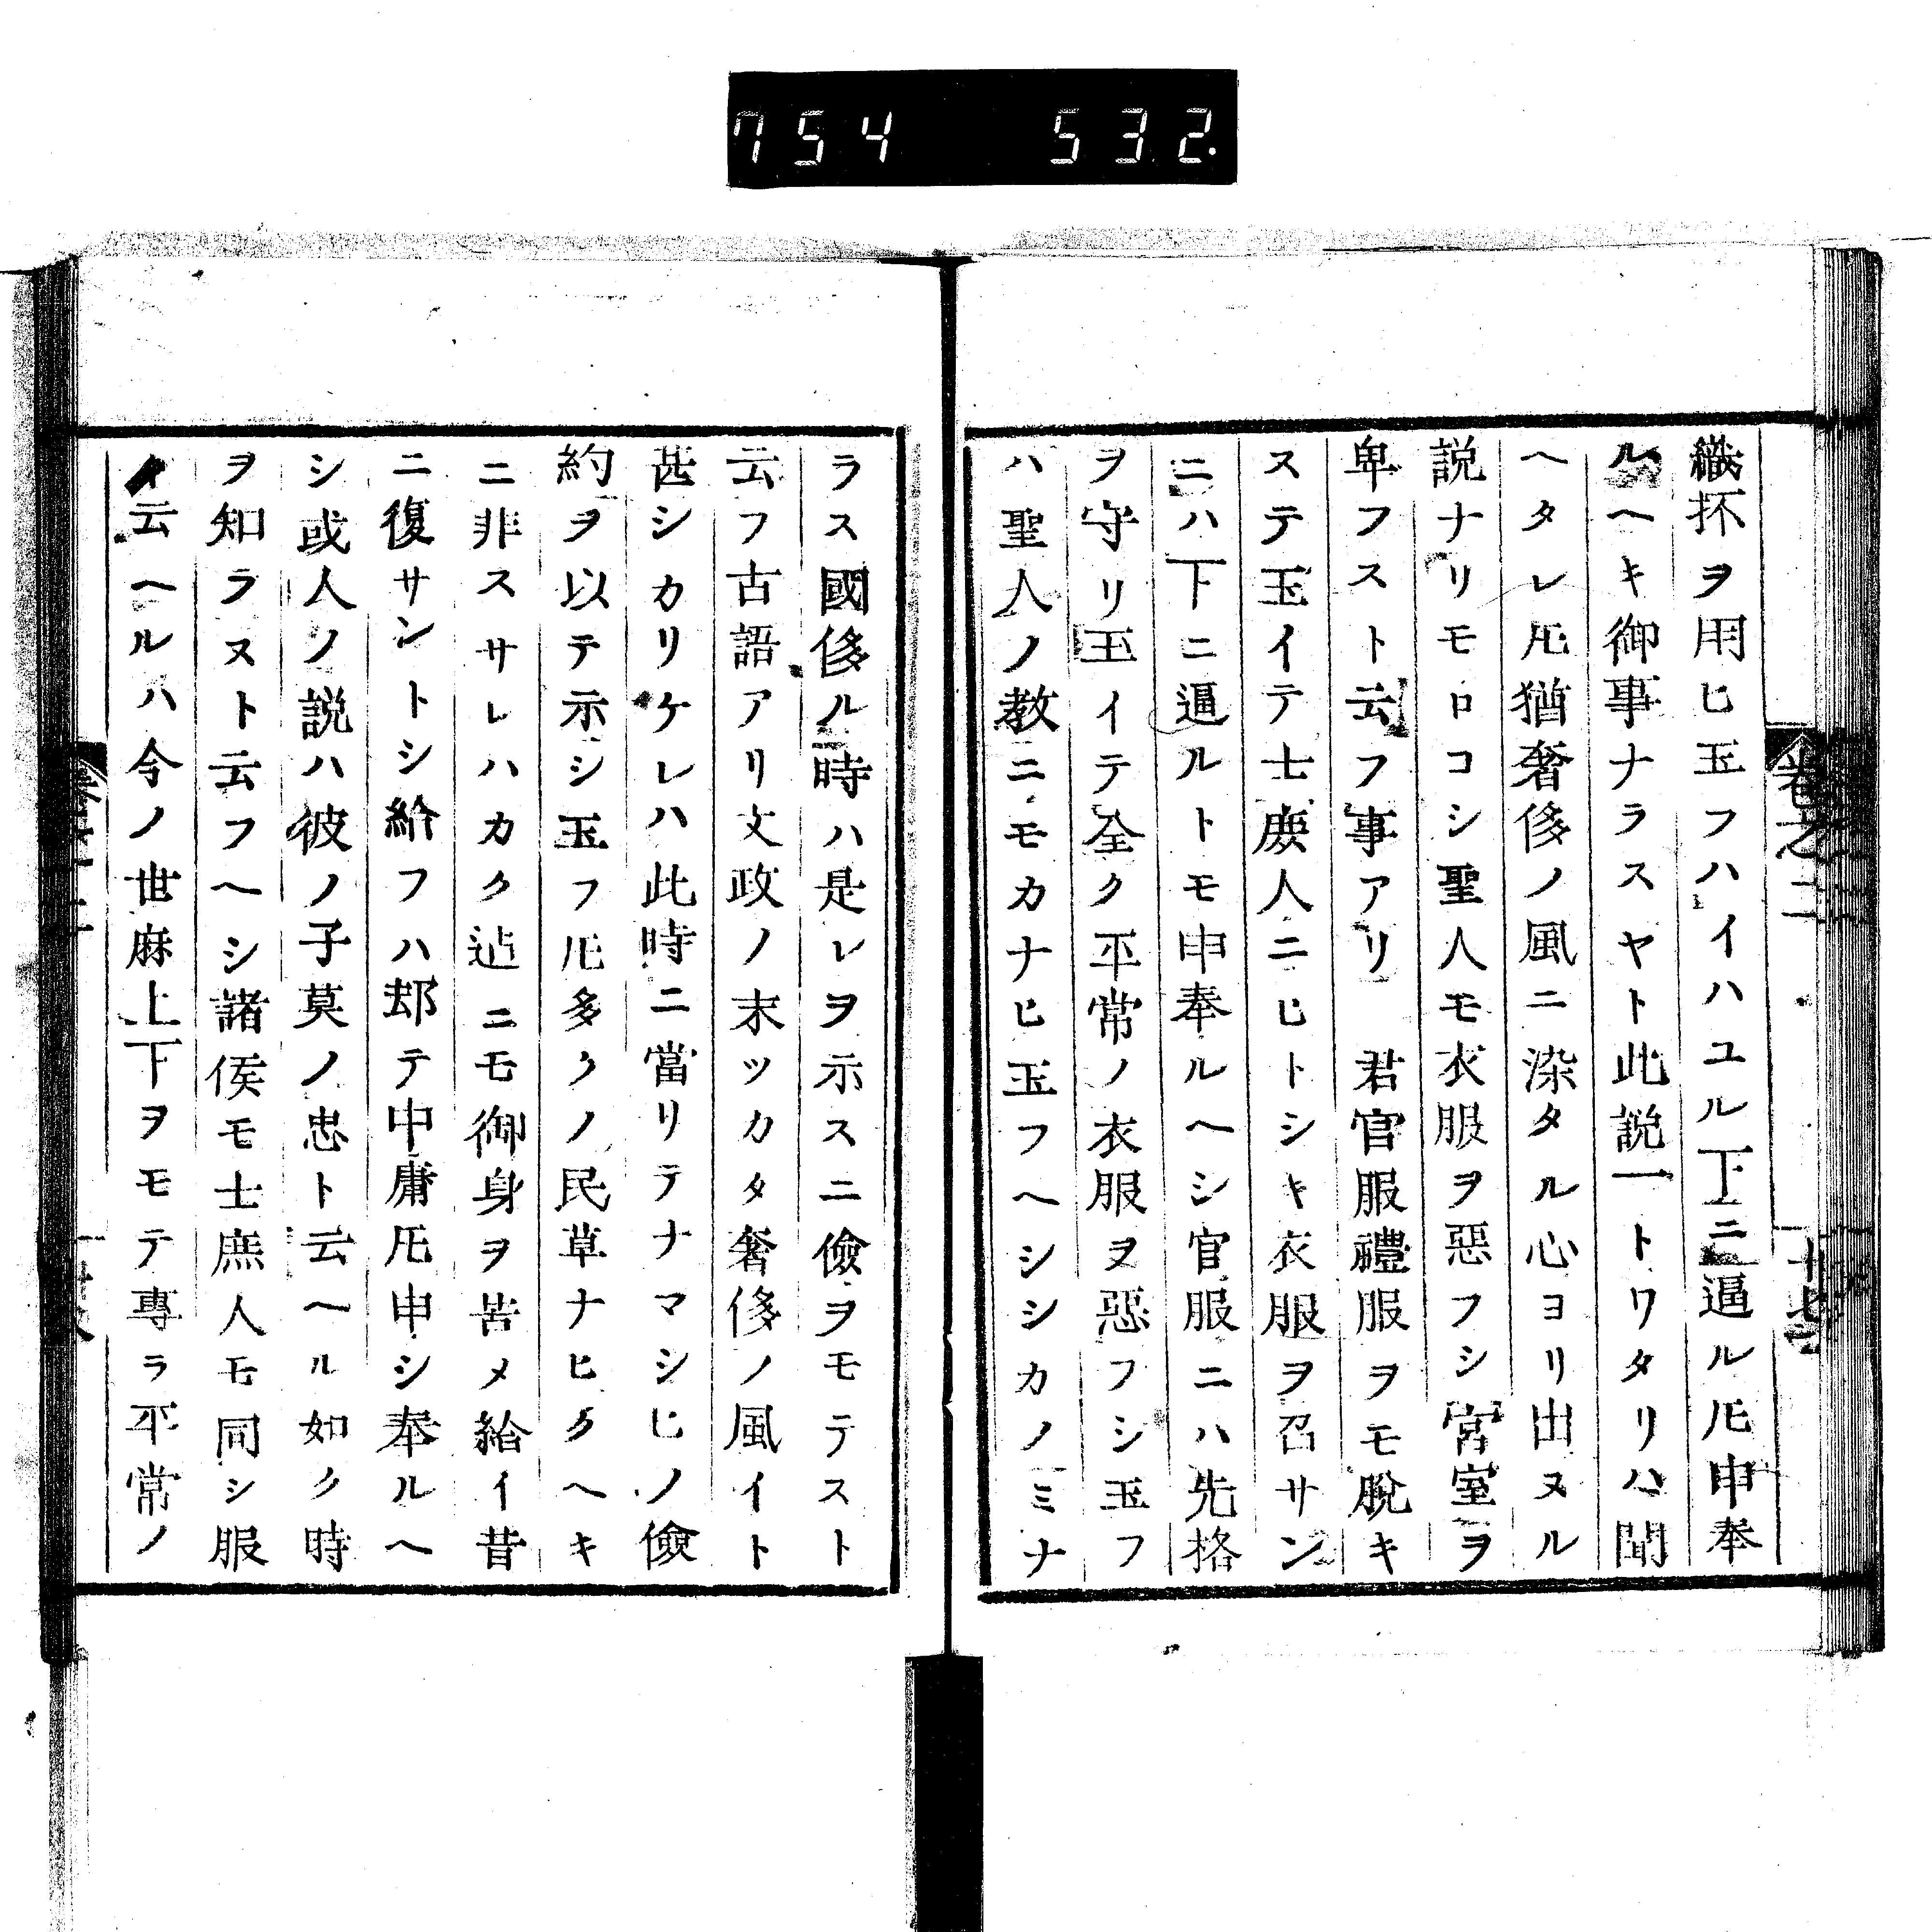 754 532.
卷之二
十七
織抔ヲ用ヒ玉フハイハユル下ニ逼ル𪜈申奉
ルヘキ御事ナラスヤト此説一トワタリハ聞
ヘタレ𪜈猶奢侈ノ風ニ染タル心ヨリ出ヌル
説ナリモロコシ聖人モ衣服ヲ惡フシ宮室ヲ
卑フスト云フ事アリ 君官服禮服ヲモ脱キ
ステ玉イテ士庶人ニヒトシキ衣服ヲ召サン
ニハ下ニ逼ルトモ申奉ルヘシ官服ニハ先格
ヲ守リ玉イテ全ク平常ノ衣服ヲ惡フシ玉フ
ハ聖人ノ教ニモカナヒ玉フヘシシカノミナ
ラス國侈ル時ハ是レヲ示スニ儉ヲモテスト
云フ古語アリ文政ノ末ツカタ奢侈ノ風イト
甚シカリケレハ此時ニ當リテナマシヒノ儉
約ヲ以テ示シ玉フ𪜈多クノ民草ナヒクヘキ
ニ非スサレハカク迠ニモ御身ヲ苦メ給イ昔
ニ復サントシ給フハ却テ中庸𪜈申シ奉ルヘ
シ或人ノ説ハ彼ノ子莫ノ忠ト云ヘル如ク時
ヲ知ラヌト云フヘシ諸侯モ士庶人モ同シ服
イ云ヘルハ今ノ世麻上下ヲモテ專ラ平常ノ